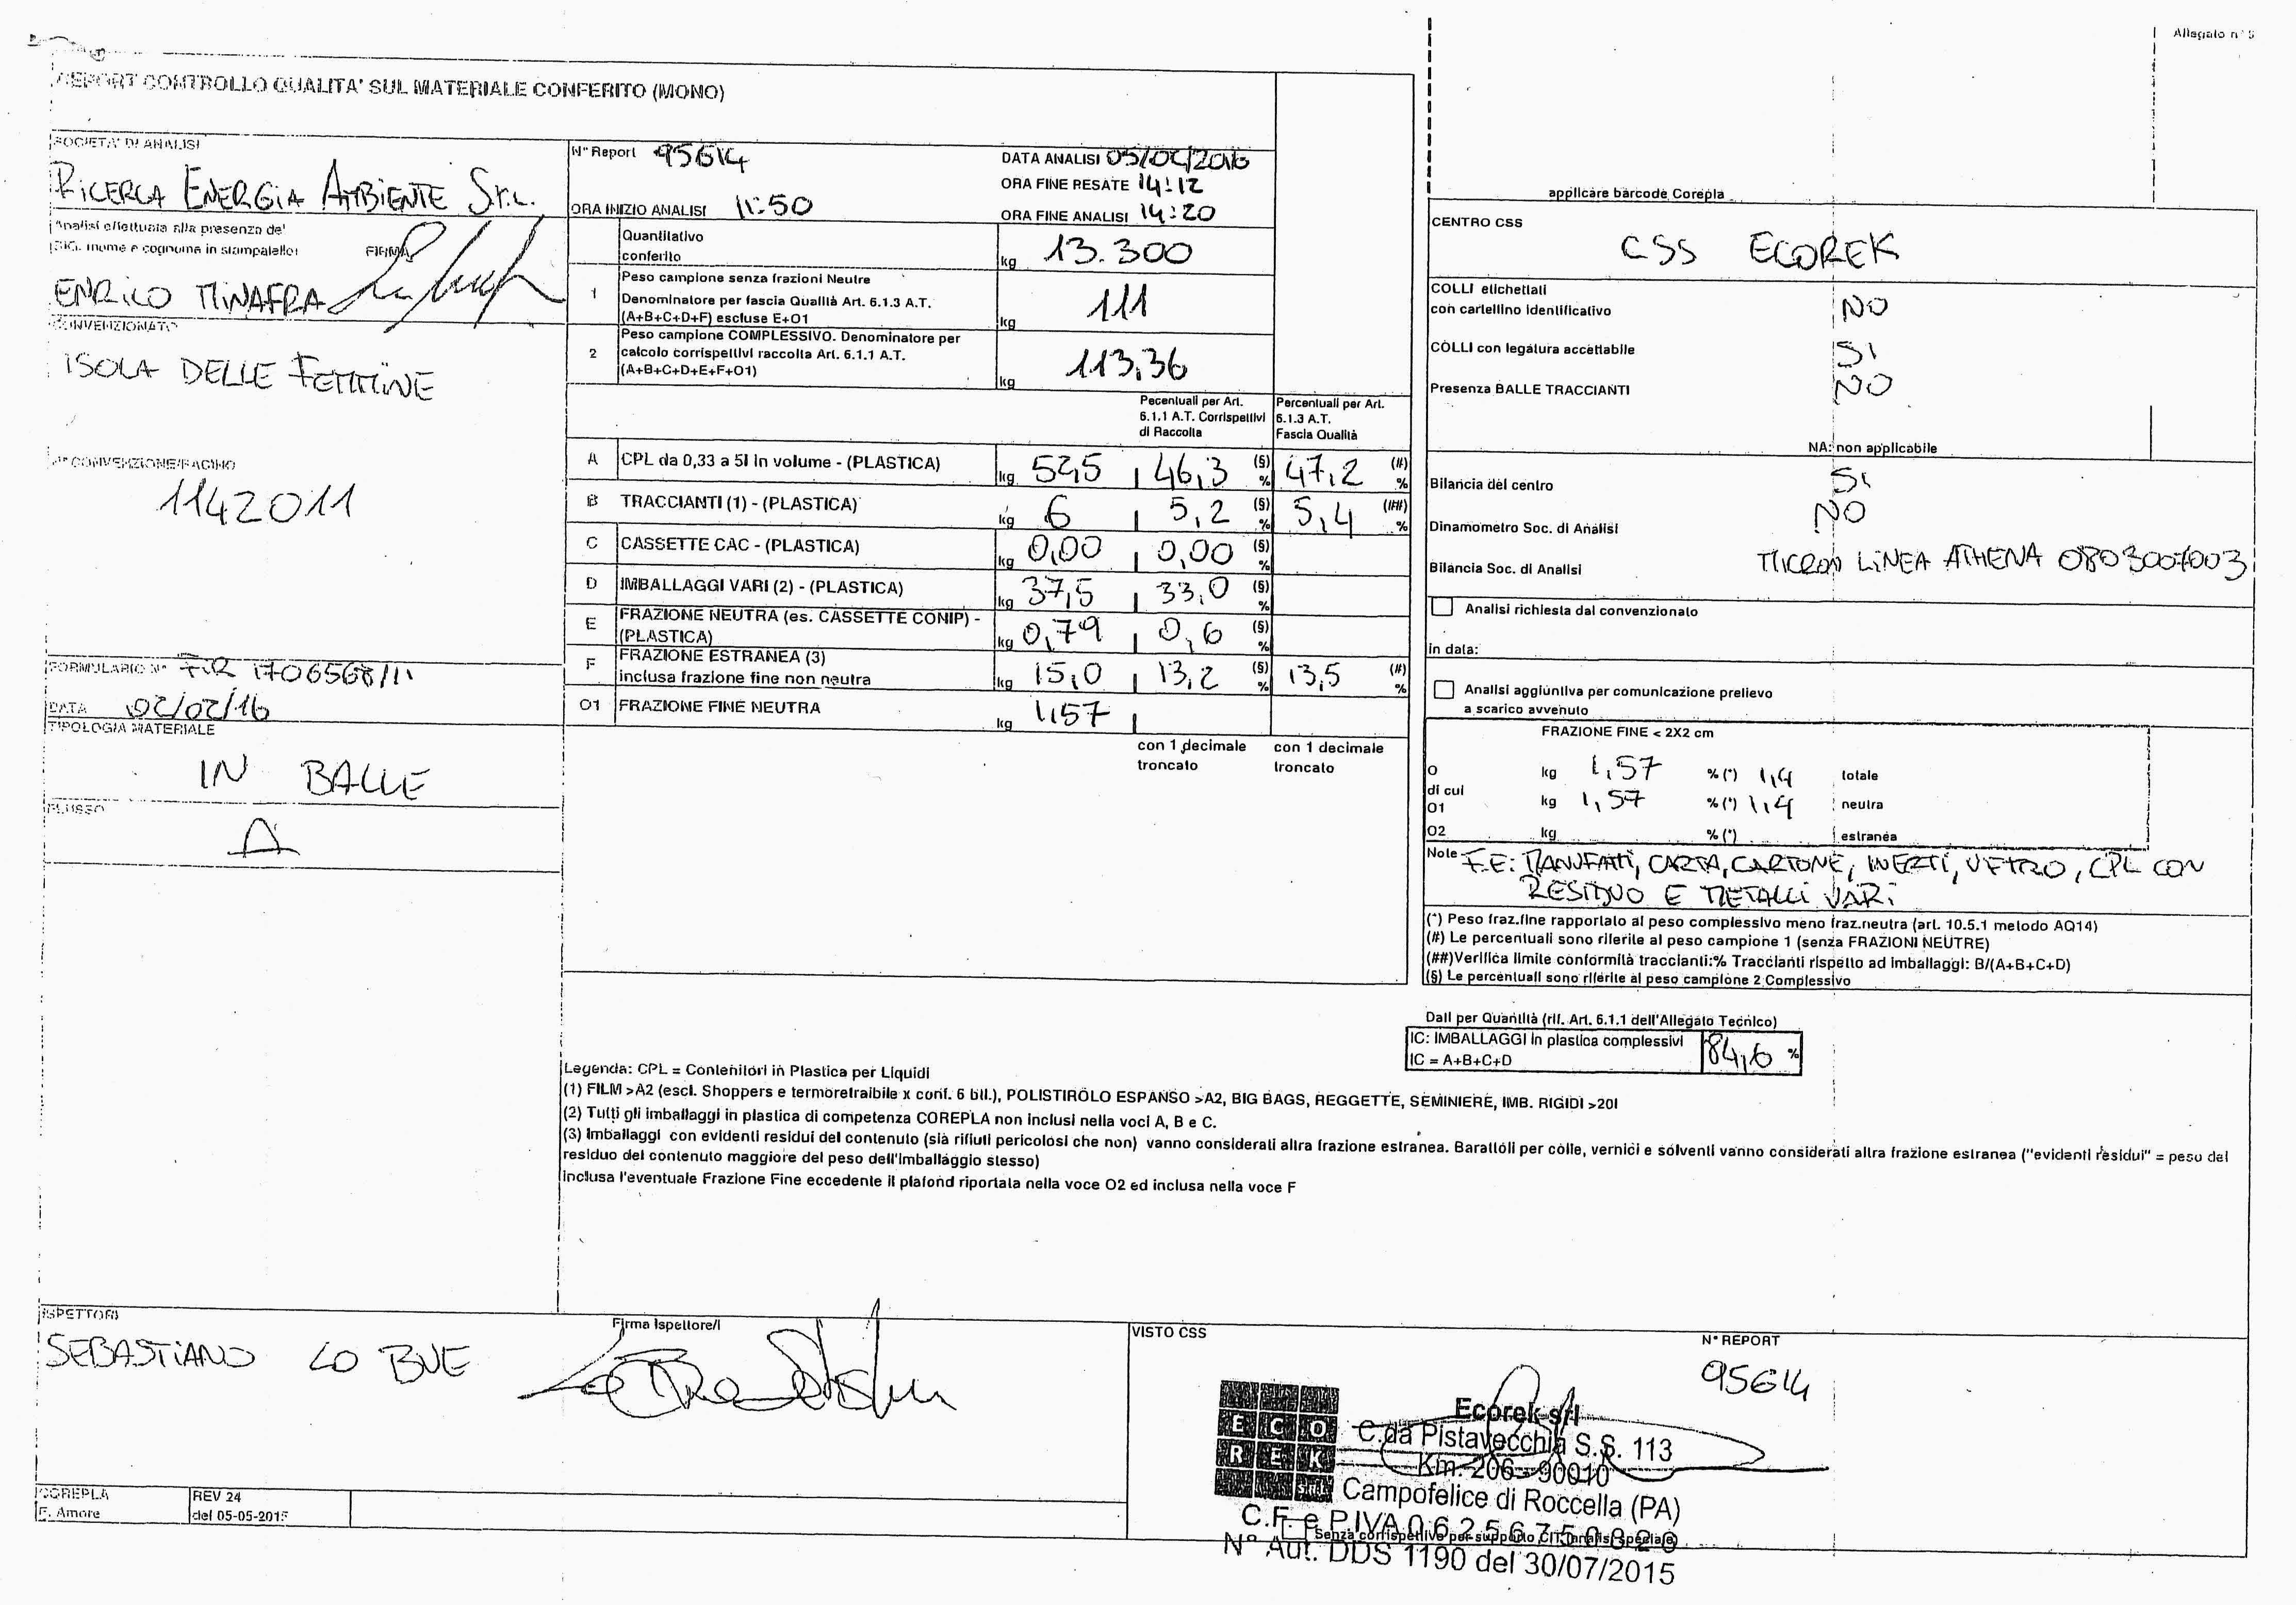 Allegato n° 5
REPORT CONTROLLO QUALITA' SUL MATERIALE CONFERITO (MONO)
SOCIETA' DI ANALISI
RICERCA ENERGIA AMBIENTE S.r.l.
Analisi effettuata alla presenza del
SIG. (nome e cognome in stampatello)
FIRMA
ENRICO MINAFRA
CONVENZIONATO
ISOLA DELLE FEMMINE
N° CONVENZIONE/BACINO
1142011
FORMULARIO N° FIR 1706568/11
DATA 02/02/16
TIPOLOGIA MATERIALE
IN BALLE
FLUSSO
A
N° Report 95614
DATA ANALISI 05/02/2016
ORA FINE RESATE 14:12
ORA INIZIO ANALISI 11:50
ORA FINE ANALISI 14:20
Quantitativo
conferito kg 13.300
1 Peso campione senza frazioni Neutre
Denominatore per fascia Qualità Art. 6.1.3 A.T.
(A+B+C+D+F) escluse E+O1 kg 111
2 Peso campione COMPLESSIVO. Denominatore per
calcolo corrispettivi raccolta Art. 6.1.1 A.T.
(A+B+C+D+E+F+O1) kg 113,36
Pecentuali per Art.
6.1.1 A.T. Corrispettivi
di Raccolta
Percentuali per Art.
6.1.3 A.T.
Fascia Qualità
A CPL da 0,33 a 5l in volume - (PLASTICA) kg 52,5 46,3 (§) % 47,2 (#) %
B TRACCIANTI (1) - (PLASTICA) kg 6 5,2 (§) % 5,4 (##) %
C CASSETTE CAC - (PLASTICA) kg 0,00 0,00 (§) %
D IMBALLAGGI VARI (2) - (PLASTICA) kg 37,5 33,0 (§) %
E FRAZIONE NEUTRA (es. CASSETTE CONIP) -
(PLASTICA) kg 0,79 0,6 (§) %
F FRAZIONE ESTRANEA (3)
inclusa frazione fine non neutra kg 15,0 13,2 (§) % 13,5 (#) %
O1 FRAZIONE FINE NEUTRA kg 1,57
con 1 decimale
troncato
con 1 decimale
troncato
applicare barcode Corepla
CENTRO CSS
CSS ECOREK
COLLI etichettati
con cartellino identificativo NO
COLLI con legatura accettabile SI
Presenza BALLE TRACCIANTI NO
NA: non applicabile
Bilancia del centro SI
Dinamometro Soc. di Analisi NO
Bilancia Soc. di Analisi MICRON LINEA ATHENA 0803007003
Analisi richiesta dal convenzionato
in data:
Analisi aggiuntiva per comunicazione prelievo
a scarico avvenuto
FRAZIONE FINE < 2X2 cm
O kg 1,57 % (*) 1,4 totale
di cui
O1 kg 1,57 % (*) 1,4 neutra
O2 kg % (*) estranea
Note F.E: MANUFATTI, CARTA, CARTONE, INERTI, VETRO, CPL CON
RESIDUO E METALLI VARI
(*) Peso fraz.fine rapportato al peso complessivo meno fraz.neutra (art. 10.5.1 metodo AQ14)
(#) Le percentuali sono riferite al peso campione 1 (senza FRAZIONI NEUTRE)
(##)Verifica limite conformità traccianti:% Traccianti rispetto ad imballaggi: B/(A+B+C+D)
(§) Le percentuali sono riferite al peso campione 2 Complessivo
Dati per Quantità (rif. Art. 6.1.1 dell'Allegato Tecnico)
IC: IMBALLAGGI in plastica complessivi
IC = A+B+C+D 84,6 %
Legenda: CPL = Contenitori in Plastica per Liquidi
(1) FILM >A2 (escl. Shoppers e termoretraibile x conf. 6 btl.), POLISTIROLO ESPANSO >A2, BIG BAGS, REGGETTE, SEMINIERE, IMB. RIGIDI >20l
(2) Tutti gli imballaggi in plastica di competenza COREPLA non inclusi nella voci A, B e C.
(3) Imballaggi con evidenti residui del contenuto (sia rifiuti pericolosi che non) vanno considerati altra frazione estranea. Barattoli per colle, vernici e solventi vanno considerati altra frazione estranea ("evidenti residui" = peso del
residuo del contenuto maggiore del peso dell'imballaggio stesso)
inclusa l'eventuale Frazione Fine eccedente il plafond riportata nella voce O2 ed inclusa nella voce F
ISPETTORI
SEBASTIANO LO BUE
Firma Ispettore/i
VISTO CSS
N° REPORT
95614
ECO
REK
Srl
Ecorek srl
C.da Pistavecchia S.S. 113
Km. 206 - 90010
Campofelice di Roccella (PA)
C.F. e P.IVA 06256750820
Senza corrispettivo per supporto CIT (analisi speciale)
N° Aut. DDS 1190 del 30/07/2015
COREPLA
F. Amore
REV 24
del 05-05-2015